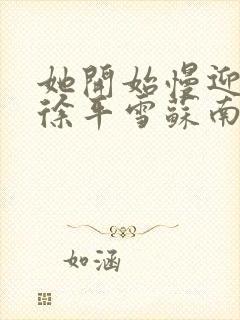 她開始慢迎
徐平雪蘇南
如涵